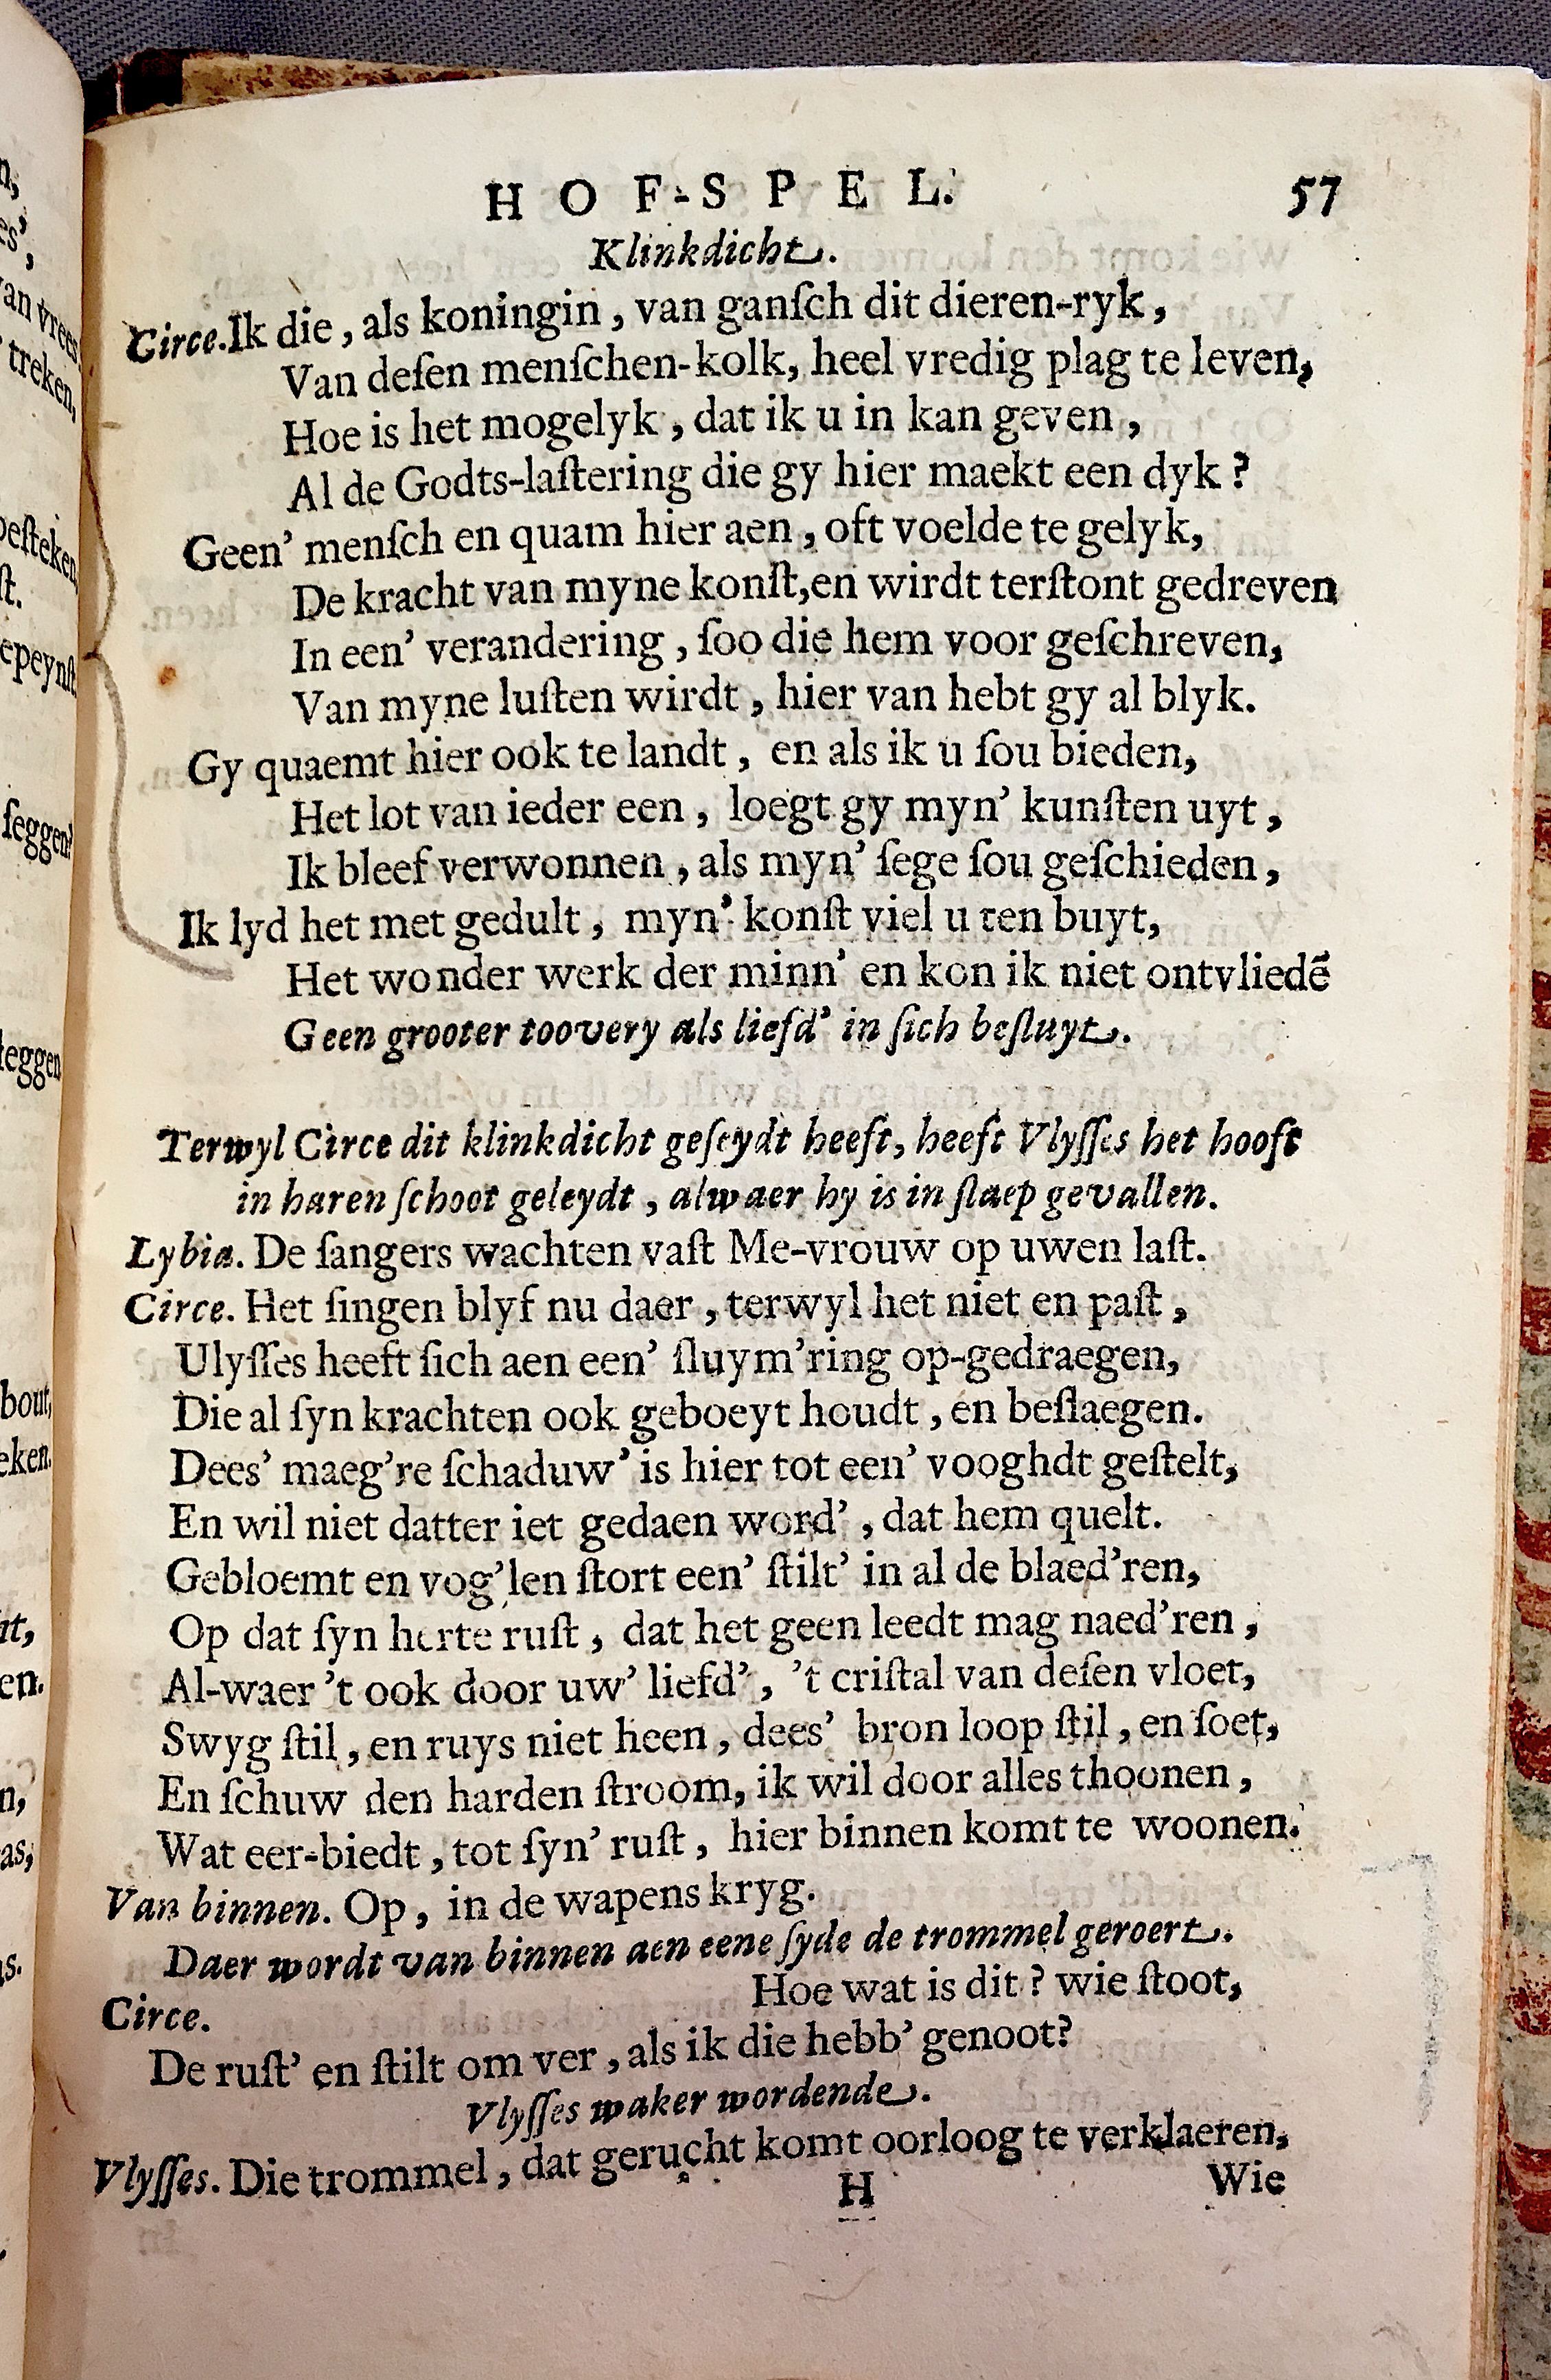 HOF-SPEL. 57
Klinkdicht.
Circe. Ik die, als koningin, van ganſch dit dieren-ryk,
Van deſen menſchen-kolk, heel vredig plag te leven,
Hoe is het mogelyk, dat ik u in kan geven,
Al de Godts-laſtering die gy hier maekt een dyk?
Geen' menſch en quam hier aen, oft voelde te gelyk,
De kracht van myne konſt, en wirdt terſtont gedreven
In een' verandering, ſoo die hem voor geſchreven,
Van myne luſten wirdt, hier van hebt gy al blyk.
Gy quaemt hier ook te landt, en als ik u ſou bieden,
Het lot van ieder een, loegt gy myn' kunſten uyt,
Ik bleef verwonnen, als myn' ſege ſou geſchieden,
Ik lyd het met gedult, myn' konſt viel u ten buyt,
Het wonder werk der minn' en kon ik niet ontvliedē
Geen grooter toovery als liefd' in ſich beſluyt.
Terwyl Circe dit klinkdicht geſeydt heeft, heeft Vlyſſes het hooft
in haren ſchoot geleydt, alwaer hy is in ſlaep gevallen.
Lybia. De ſangers wachten vaſt Me-vrouw op uwen laſt.
Circe. Het ſingen blyf nu daer, terwyl het niet en paſt,
Ulyſſes heeft ſich aen een' ſluym'ring op-gedraegen,
Die al ſyn krachten ook geboeyt houdt, en beſlaegen.
Dees' maeg're ſchaduw' is hier tot een' vooghdt geſtelt,
En wil niet datter iet gedaen word', dat hem quelt.
Gebloemt en vog'len ſtort een' ſtilt' in al de blaed'ren,
Op dat ſyn herte ruſt, dat het geen leedt mag naed'ren,
Al-waer 't ook door uw' liefd', 't criſtal van deſen vloet,
Swyg ſtil, en ruys niet heen, dees' bron loop ſtil, en ſoet,
En ſchuw den harden ſtroom, ik wil door alles thoonen,
Wat eer-biedt, tot ſyn' ruſt, hier binnen komt te woonen.
Van binnen. Op, in de wapens kryg.
Daer wordt van binnen aen eene ſyde de trommel geroert.
Circe. Hoe wat is dit? wie ſtoot,
De ruſt' en ſtilt om ver, als ik die hebb' genoot?
Vlyſſes waker wordende.
Vlyſſes. Die trommel, dat gerucht komt oorloog te verklaeren,
H Wie